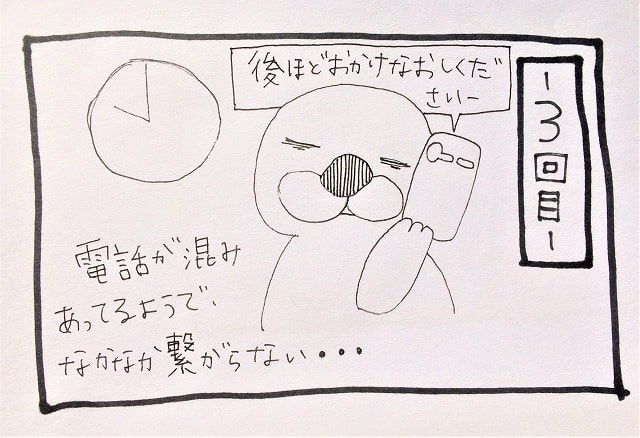 -3回目-
後ほどおかけなおしくだ
さいー
電話が混み
あってるようで、
なかなか繋がらない・・・